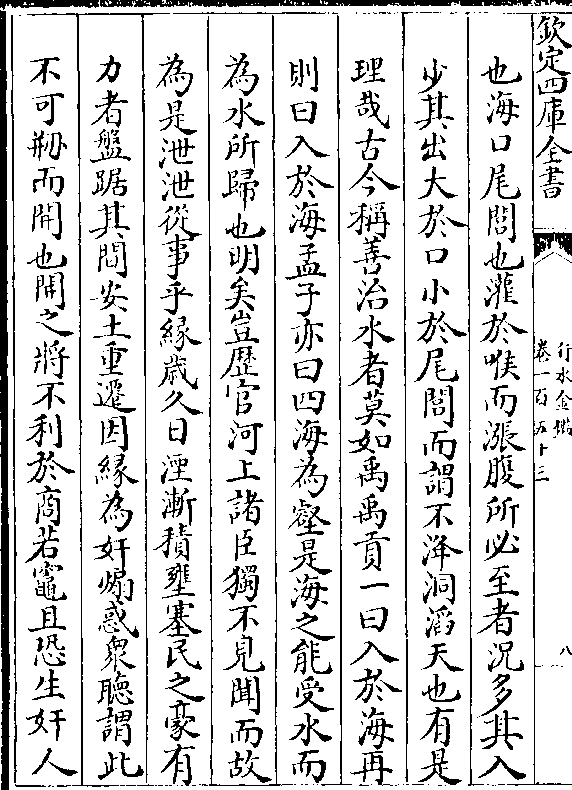 欽定四庫全書
行水金鑑
卷一百五十三
八
也海口尾閭也灌於喉而漲腹所必至者況多其入
少其出大於口小於尾閭而謂不洚洞滔天也有是
理哉古今稱善治水者莫如禹禹貢一曰入於海再
則曰入於海孟子亦曰四海為壑是海之能受水而
為水所歸也明矣豈歷官河上諸臣獨不見聞而故
為是泄泄從事乎緣歲久日湮漸積壅塞民之豪有
力者盤踞其間安土重遷因緣為奸煽惑衆聽謂此
不可剏而開也開之將不利於商若竈且恐生奸人